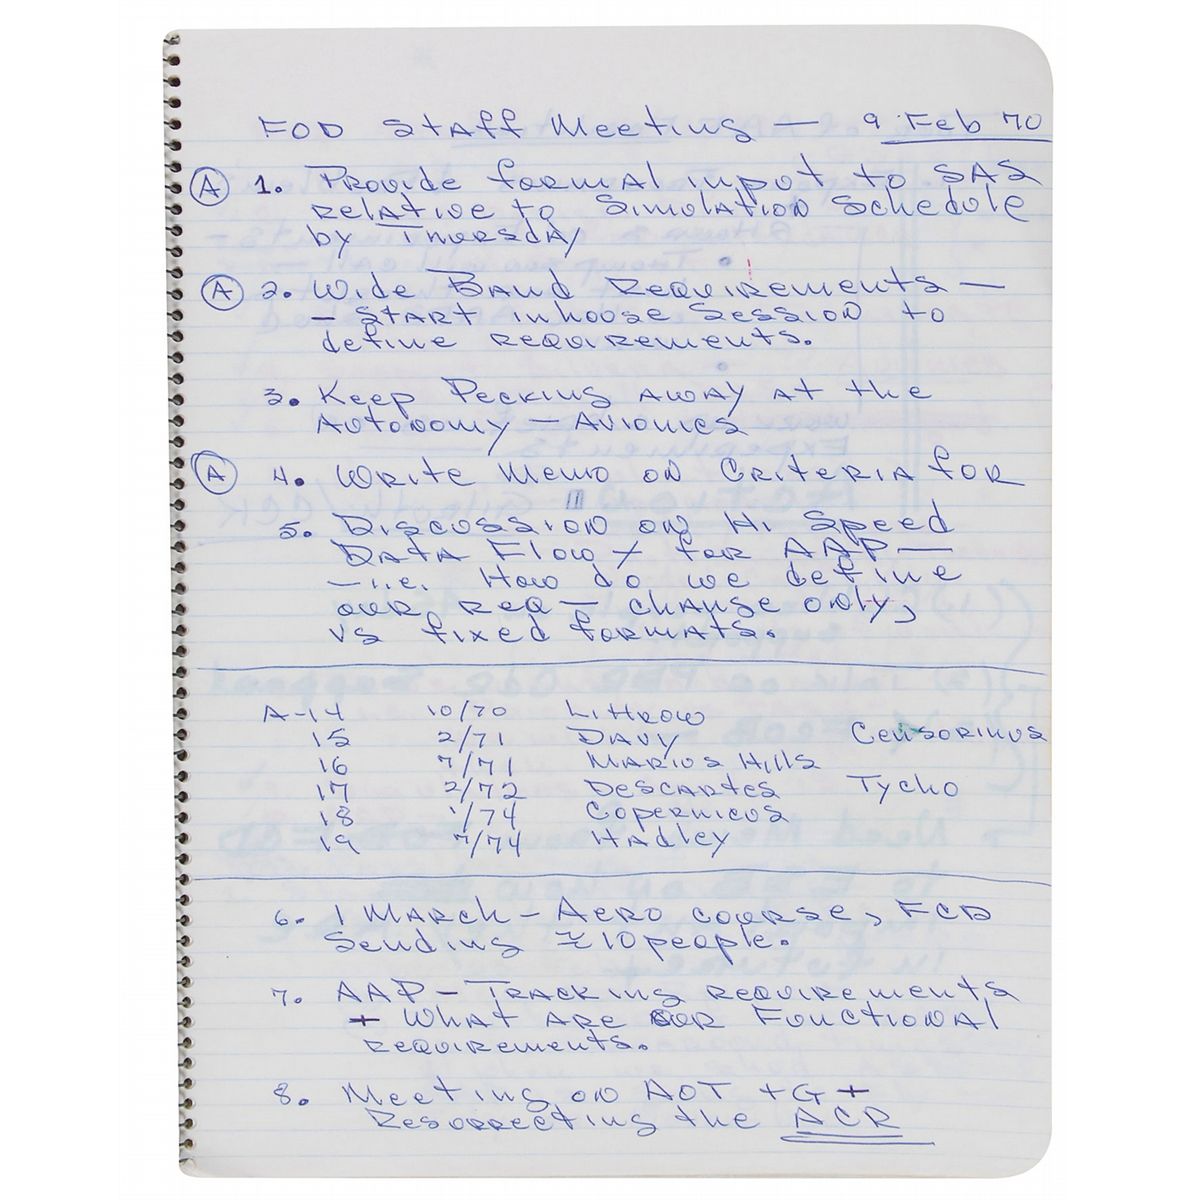 FOD Staff Meeting — 9 Feb 70
(A) 1. Provide formal input to SAS
relative to Simulation Schedule
by Thursday
(A) 2. Wide Band Requirements —
– Start inhouse Session to
define requirements.
3. Keep Pecking away at the
Autonomy – Avionics
(A) 4. Write Memo on Criteria for
5. Discussion on Hi Speed
Data Flow / for AAP —
– i.e. How do we define
our req — change only,
vs fixed formats.
A-14 10/70 Littrow
15 2/71 Davy Censorinus
16 7/71 Marius Hills
17 2/72 Descartes Tycho
18 1/74 Copernicus
19 7/74 Hadley
6. 1 March – Aero course, FCD
Sending ≈ 10 people.
7. AAP – Tracking requirements
+ What are our Functional
requirements.
8. Meeting on AOT + G +
Resorrecting the ACR